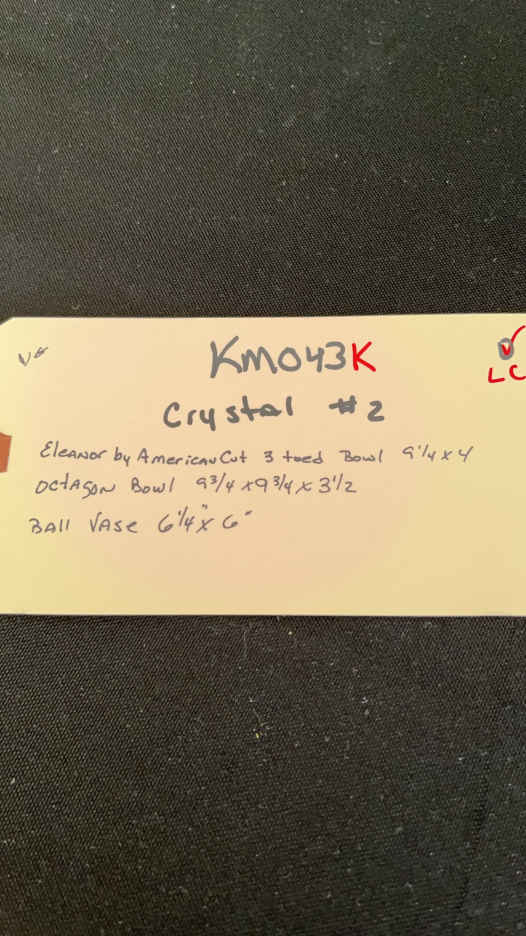 KM043K
LC
Crystal #2
Eleanor by American Cut 3 toed Bowl 9 1/4 x 4
Octagon Bowl 9 3/4 x 9 3/4 x 3 1/2
Ball Vase 6 1/4" x 6"